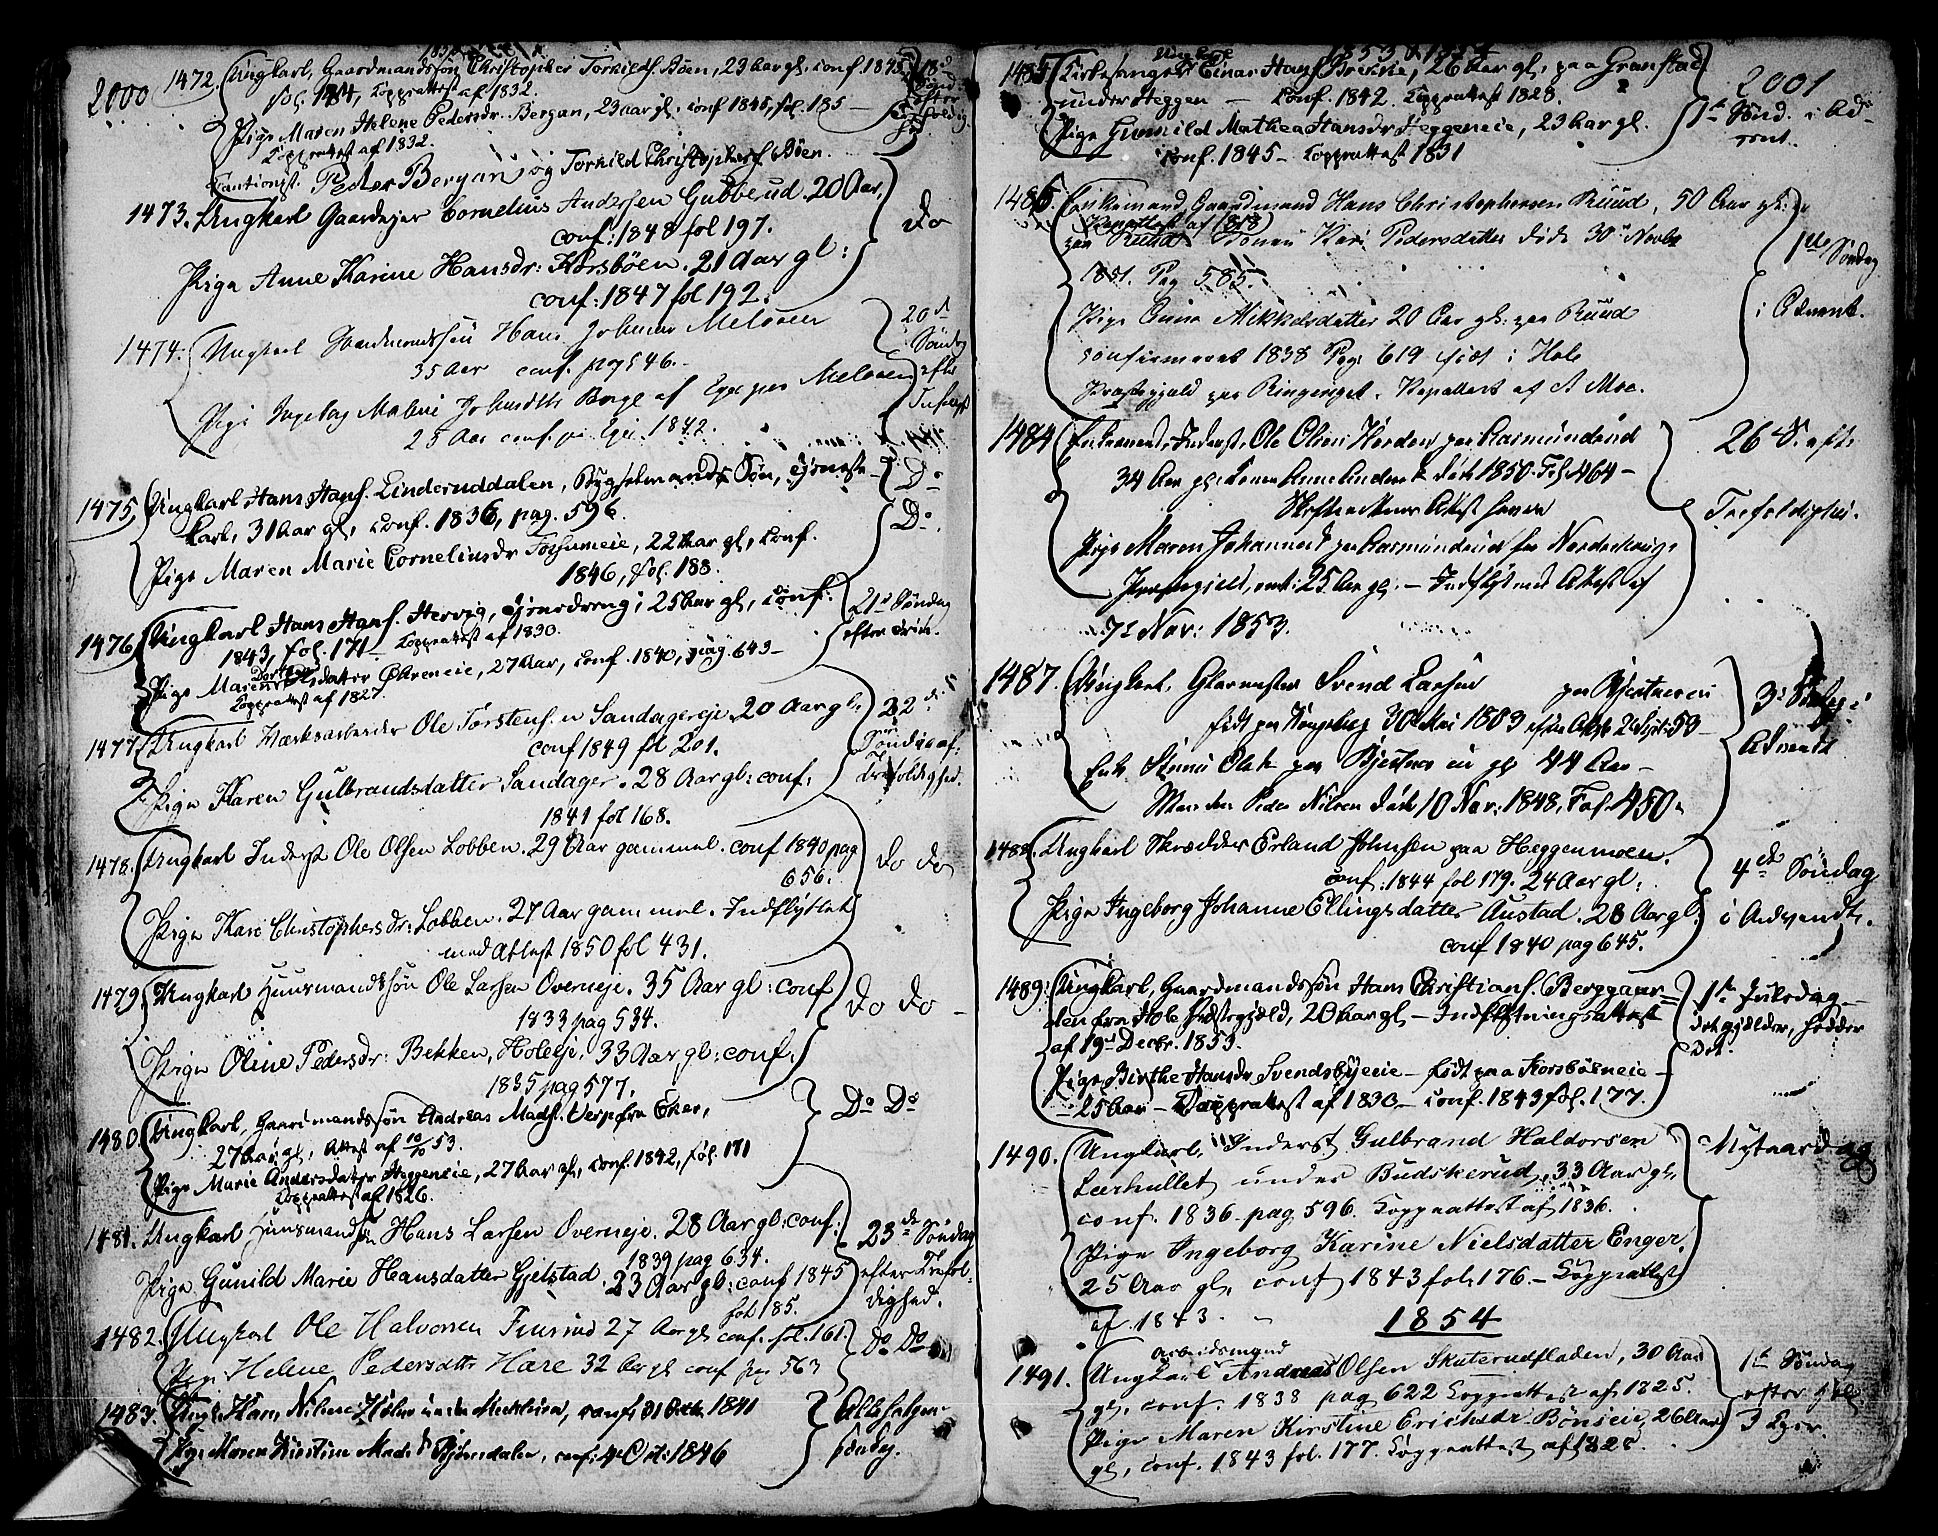 2000
1472. Ungkarl, Gaardmandssøn Christopher Torkilds. Bøen, 23 Aar gl. conf. 1845
fol. 184, Koppeattest af 1832.
Pige Maren Helene Pedersdr. Bergan, 23 aar gl. conf. 1845, fol. 185 —
Koppeattest af 1832.
Cautionist. Peder Bergan, og Torkild Christophers. Bøen.
1473. Ungkarl Gaardejer Cornelius Andersen Gubberud. 20 Aar,
conf: 1848 fol 197.
Do
Pige Anne Karine Hansdr: Korsbøen. 21 Aar gl:
conf: 1847 fol 192.
1474. Ungkarl Gaardmandssøn Hans Johnsen Meløeen
35 Aar conf. pag 546.
20de Søndag efter Trefold.
Pige Ingebog Malene 
28 Aar conf. 1842.
1475. Ungkarl Hans Hans. Linderuddalen, Bygselmands Søn, tjeneste-
karl, 31 Aar gl, conf. 1836, pag. 596.
Do
Pige Maren Marie Corneliusdr Fossumeie, 22 Aar gl, conf.
1846, fol. 188.
Do
1476. Ungkarl Hans Hans. Hervig, 25 Aar gl, conf.
1843, fol. 171 — Koppeattest af 1830.
21de Søndag
efter Trin.
Pige Maren Olsdatter 27 Aar, conf. 1840, pag. 643 —
Koppeattest af 1827.
1477. Ungkarl Værksarbeider Ole Torstensen Sandagereje. 20 Aar gl:
conf 1849 fol 201.
22de
Søndag ef.
Trefoldighed.
Pige Karen Gulbrandsdatter Sandager. 28 Aar gl: conf:
1841 fol 168.
1478. Ungkarl Inderst Ole Olsen Lobben. 29 Aar gammel. conf 1840 pag
656.
Do Do
Pige Kari Christophersdr: Lobben. 27 Aar gammel. Indflyttet
med Attest 1850 fol 431.
1479. Ungkarl Huusmandssøn Ole Larsen Overneje. 35 Aar gl: conf
1833 pag 534.
Do Do
Pige Oline Pedersdr: Bekken, Holeeje. 33 Aar gl: conf:
1835 pag 577.
1480. Ungkarl, Gaardmandssøn Andreas Mads. Verp fra Eker,
27 Aar gl, Attest af 10/10 53.
Do Do
Pige Marie Andersdatter Heggeneie, 27 Aar gl, conf. 1842, fol. 171
Koppeattest af 1826.
1481. Ungkarl Huusmandssøn Hans Larsen Overneje. 28 Aar gl: conf:
1839 pag 634.
23de Søndag
efter Trefol-
dighed.
Pige Gunild Marie Hansdatter Gjelstad. 23 Aar gl: conf 1845
fol. 185.
1482. Ungkarl Ole Halvorsen Finsrud 27 Aar gl conf. fol. 161.
Do Do
Pige Helene Pedersdtr Hare 32 Aar gl conf pag 563
1483. Ungk. Hans Nilsen conf: 1841
Allehelgen-
søndag.
Pige Maren Kirstine Mads D Bjørndalen, conf: 4 Oct: 1846
1853 & 1854
2001
1485. Kirkesanger Einar Hans. Brekke, 26 Aar gl, paa Granstad
under Heggen — conf. 1842. Koppeattest 1828.
1ste Sønd. i Ad-
vent.
Pige Gunild Mathea Hansdr Heggeneie, 23 Aar gl.
conf. 1845 — Koppeattest 1831
1486. Enkemand Gaardmand Hans Christophersen Ruud, 50 Aar gl:
paa Ruud Konen Kari Pedersdatter døde 30te Novbr
1851. Pag 585.
1ste Søndag
i Advent.
Pige Mikkelsdatter 20 Aar gl: paa Ruud
confirmeret 1838 Pag 619 født i Hole
Præstegjeld paa Ringeriget. Kopattest af A Moe.
1484 Enkemand, Inderst, Ole Olsen Hørden paa Rasmundrud
34 Aar gl: Konen døde 1850. Fol 464 —
Skifterettens Attest haves
26 S. eft.
Trefoldighed.
Pige Maren Johannesd paa Rasmundrud fra Nordrehougs
Præstegield, 25 Aar gl: — Indflyt med Attest af
7de Nov: 1853.
1487. Ungkarl, Glarmester Svend Larsen paa Bjertneseie
født paa Kongsberg 1803 Attest 53 —
3de Søndag i
Advent
Enke Olsd. paa Bjertnes eie gl 44 Aar —
Manden Peder Nilsen døde 10 Nov: 1848, Fol. 450 —
1488. Ungkarl Skrædder Erland Johnsen paa Heggenmoen.
conf: 1844 fol 179. 24 Aar gl:
4de Søndag
i Advendt.
Pige Ingeborg Johanne Ellingsdatter Austad. 28 Aar gl:
conf 1840 pag 645.
1489. Ungkarl, Gaardmandssøn Hans Christians. Berggaar-
den fra Hole Præstegjæld, 20 Aar gl — Indflytningsattest
af 19de Decbr. 1853.
1ste Juledag —
Pige Birthe Hansdr Svendsbyeeie — født paa Korsbøeneie —
25 Aar — Koppeattest af 1830 — conf. 1843 fol. 177.
1490. Ungkarl, Inderst Gulbrand Haldorsen
Leerhullet under Buskerud, 33 Aar gl,
conf. 1836 pag 596. Koppeattest af 1836.
Nytaarsdag
Pige Ingeborg Karine Nielsdatter Enger,
25 Aar gl, conf 1843 fol. 176 — Koppeattest
af 1843.
1854
1491. Ungkarl Arbeidsmand Andreas Olsen Skuterudfladen, 30 Aar
gl, conf. 1838 pag 622 Koppeattest af 1825.
1ste Søndag
efter Hel.
3 Kger.
Pige Maren Kirstine Ericksdr Bønseie, 26 Aar
gl, conf. 1843 fol. 177. Koppeattest af 1828.